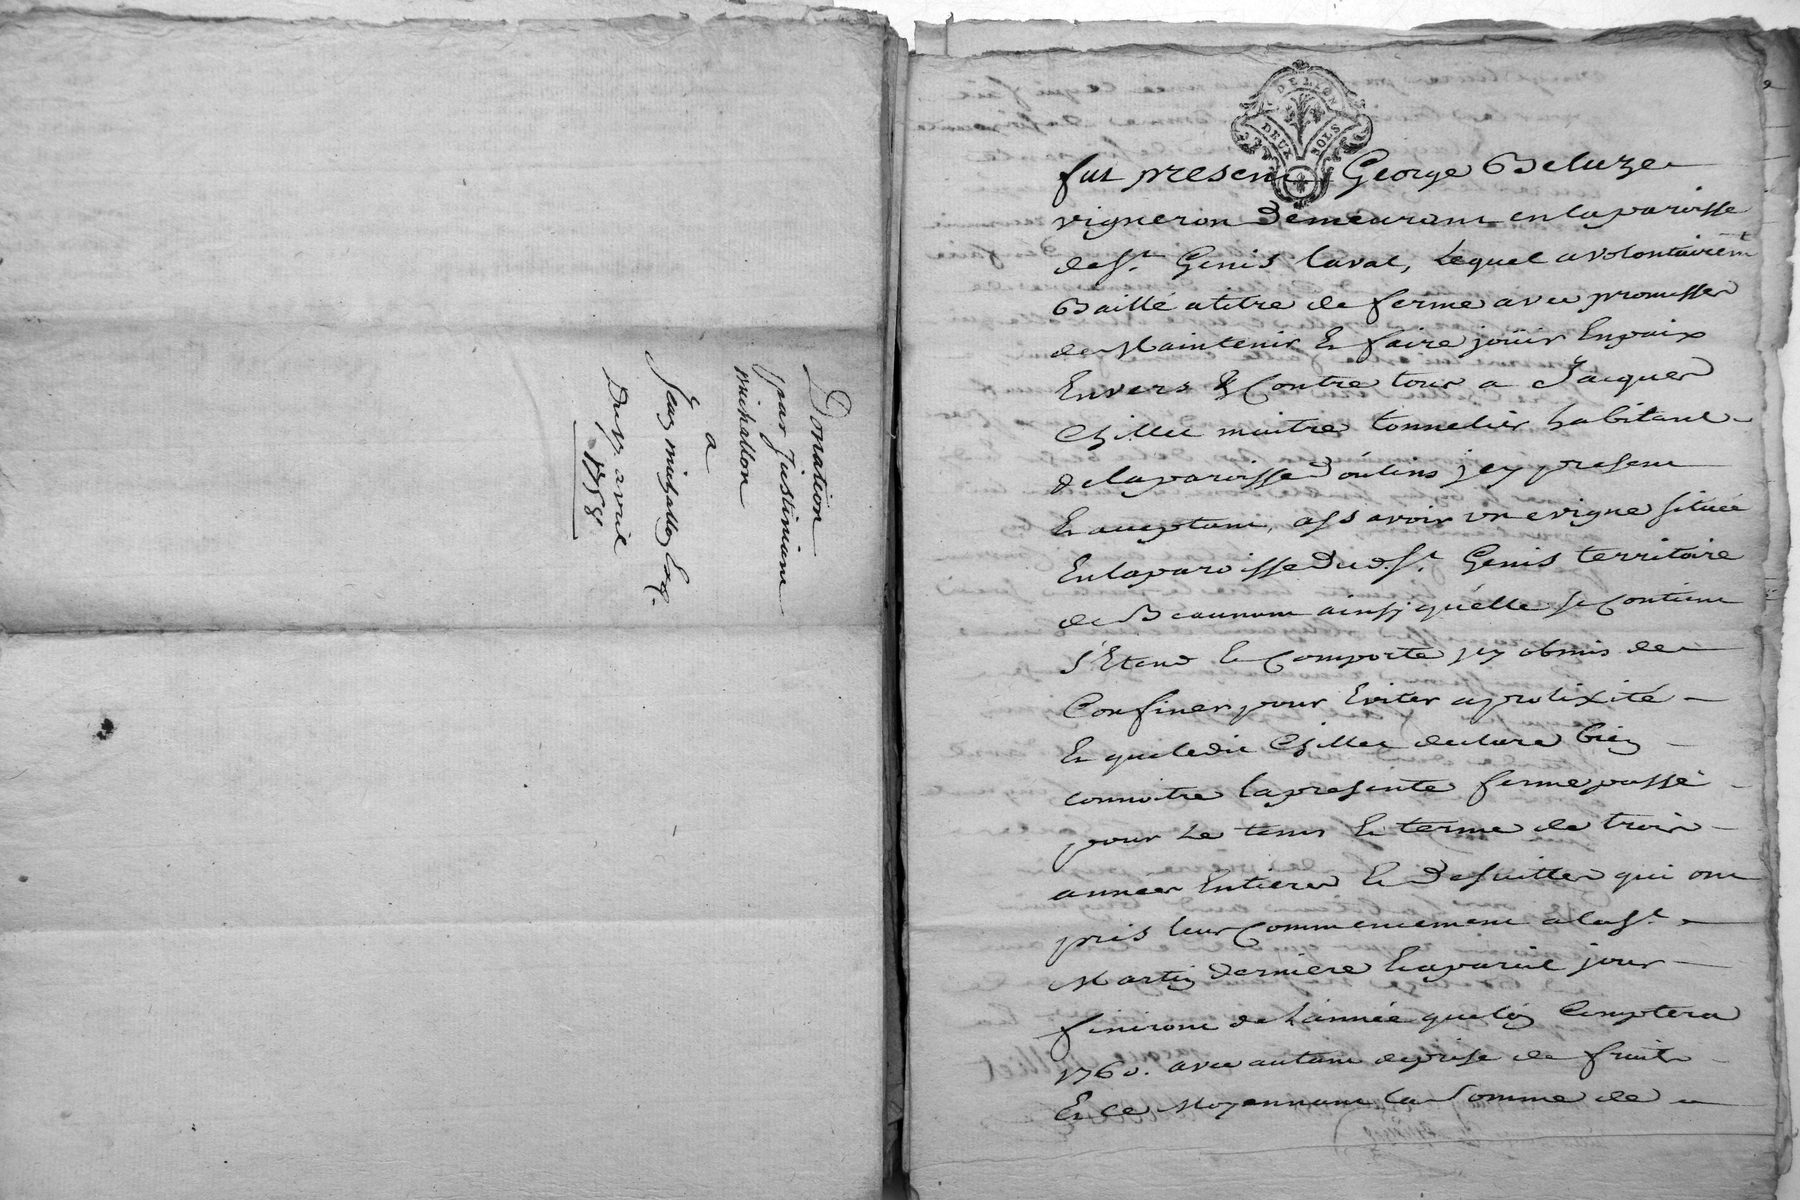 Donation
par Justiniane
michallon
a
Jean michallon Esq.
Du 17. avril
1758
DE LYON
DEUX SOLS
fut present George Beluze
vigneron demeurant en la paroisse
de St. Genis laval, Lequel a volontairemt
Baillé a titre de ferme avec promesse
de Maintenir Et faire joüir En paix
Envers & Contre tous a Jacques
Chillet maitre tonnelier habitant
de la paroisse d'oulins jcy present
Et acceptant, assavoir une vigne située
En la paroisse dud. St. Genis territoire
de Beaunum ainsj qu'elle se Contient
s'Etend Et Comporte jcy obmis de
Confiner pour Eviter a prolixité
Et que ledit Chillet declare bien
connoitre la presente ferme passé
pour Le tems Et terme de trois
années Entieres Et De suittes qui ont
pris leur Commencement a la St.
Martin derniere Et a pareil jour
finiront de L'année que lon Comptera
1760. avec autant de prise de fruits
Et ce Moyennant la Somme de